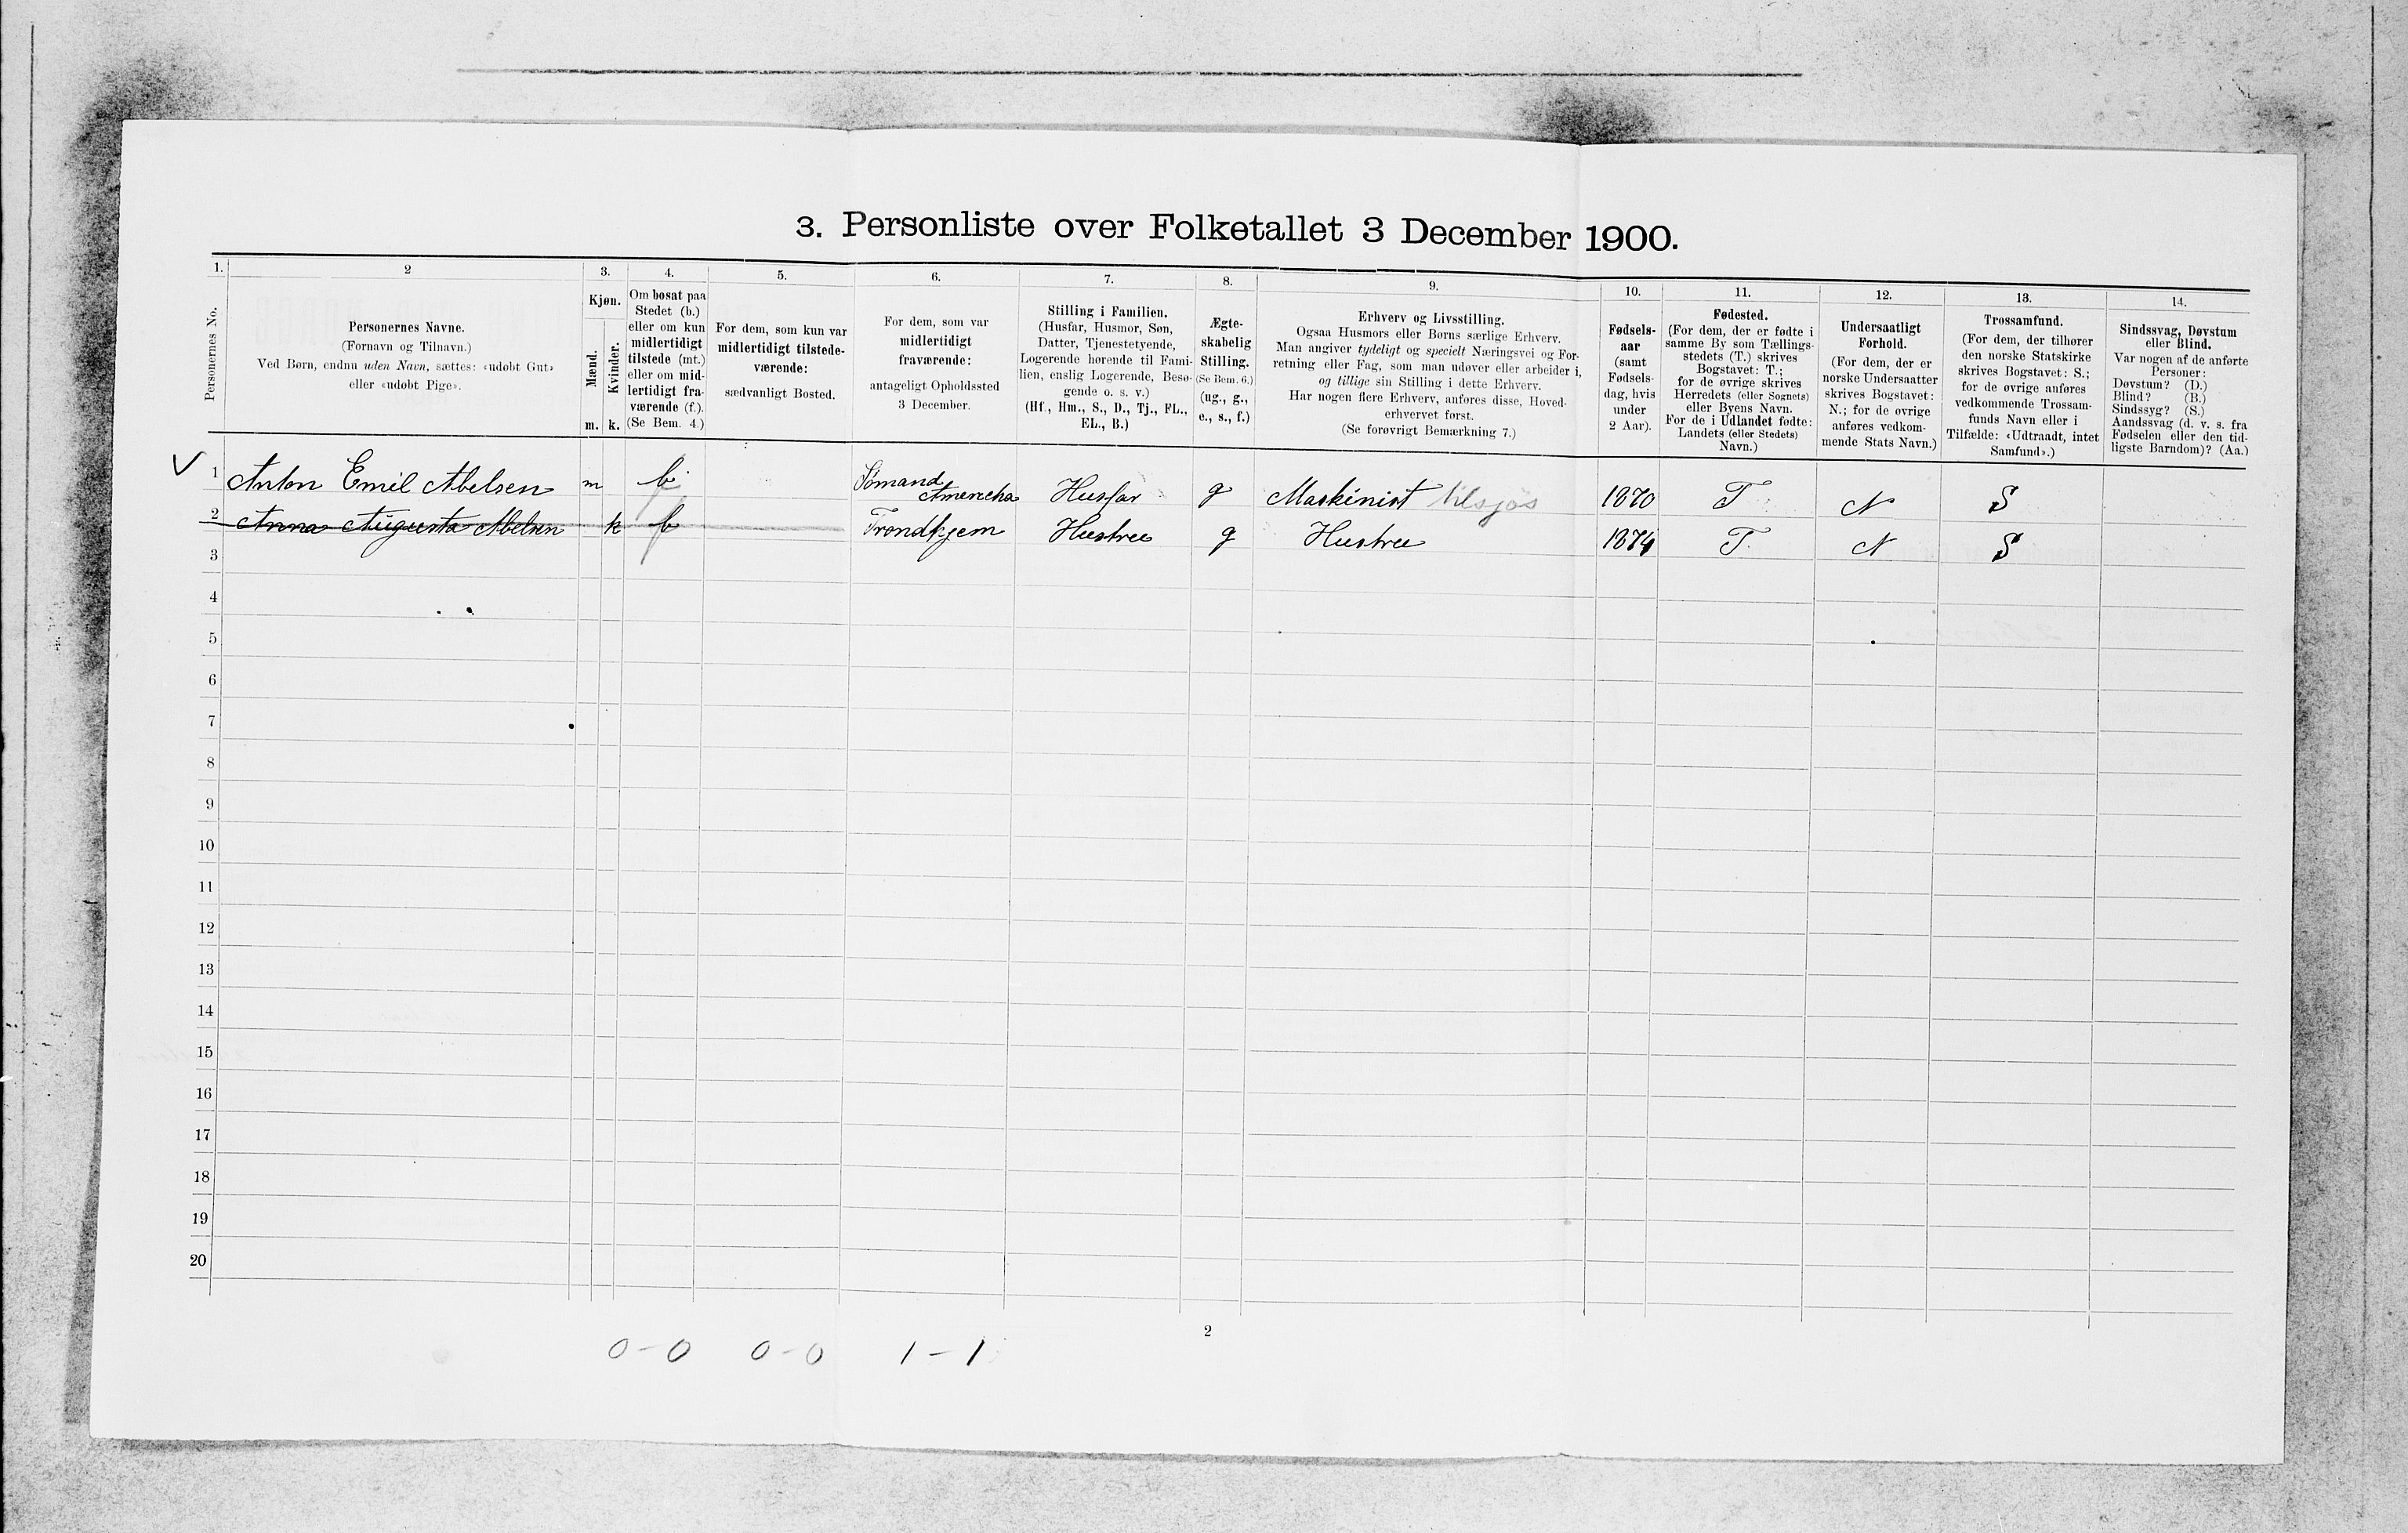 3. Personliste over Folketallet 3 December 1900.
1. 2 3. 4. 5. 6. 7. 8. 9. 10. 11. 12. 13. 14.
Personernes No.
Personernes Navne.
(Fornavn og Tilnavn.)
Ved Børn, endnu uden Navn, sættes: «udøbt Gut»
eller «udøbt Pige».
Kjøn.
Mænd.
Kvinder.
m. k.
Om bosat paa
Stedet (b.)
eller om kun
midlertidigt
tilstede (mt.)
eller om mid-
lertidigt fra-
værende (f.).
(Se Bem. 4.)
For dem, som kun var
midlertidigt tilstede-
værende:
sædvanligt Bosted.
For dem, som var
midlertidigt
fraværende:
antageligt Opholdssted
3 December.
Stilling i Familien.
(Husfar, Husmor, Søn,
Datter, Tjenestetyende,
Logerende hørende til Fami-
lien, enslig Logerende, Besø-
gende o. s. v.)
(Hf., Hm., S., D., Tj., FL.,
EL., B.)
Ægte-
skabelig
Stilling.
(Se Bem. 6.)
(ug., g.,
e., s., f.)
Erhverv og Livsstilling.
Ogsaa Husmors eller Børns særlige Erhverv.
Man angiver tydeligt og specielt Næringsvei og For-
retning eller Fag, som man udøver eller arbeider i,
og tillige sin Stilling i dette Erhverv.
Har nogen flere Erhverv, anføres disse, Hoved-
erhvervet først.
(Se forøvrigt Bemærkning 7.)
Fødsels-
aar
(samt
Fødsels-
dag, hvis
under
2 Aar).
Fødested.
(For dem, der er fødte i
samme By som Tællings-
stedets (T.) skrives
Bogstavet: T.;
for de øvrige skrives
Herredets (eller Sognets)
eller Byens Navn.
For de i Udlandet fødte:
Landets (eller Stedets)
Navn.)
Undersaatligt
Forhold.
(For dem, der er
norske Undersaatter
skrives Bogstavet:
N.; for de øvrige
anføres vedkom-
mende Stats Navn.)
Trossamfund.
(For dem, der tilhører
den norske Statskirke
skrives Bogstavet: S.;
for de øvrige anføres
vedkommende Trossam-
funds Navn eller i
Tilfælde: «Udtraadt, intet
Samfund».)
Sindssvag, Døvstum
eller Blind.
Var nogen af de anførte
Personer:
Døvstum? (D.)
Blind? (B.)
Sindssyg? (S.)
Aandssvag (d. v. s. fra
Fødselen eller den tid-
ligste Barndom)? (Aa.)
1 Anton Emil Abelsen m b Sømand Americha Husfar g Maskinist tilsjøs 1870 T N S
2 Anna Augusta Abelsen k b Trondhjem Hustru g Hustru 1874 T. N S
3
4
5
6
7
8
9
10
11
12
13
14
15
16
17
18
19
20
2
0-0 0-0 1-1